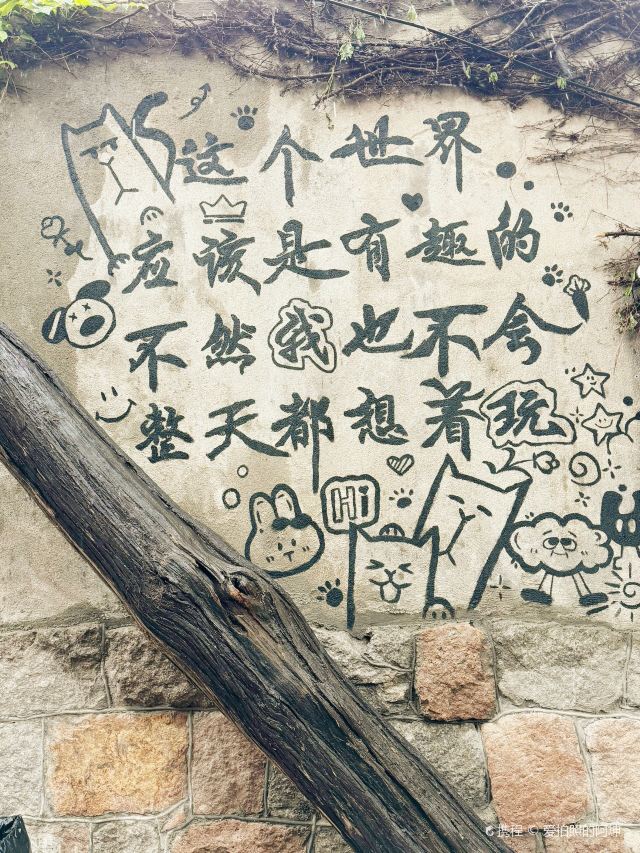 这个世界
应该是有趣的
不然我也不会
整天都想着玩
Hi
携程 © 爱拍照的阿坤